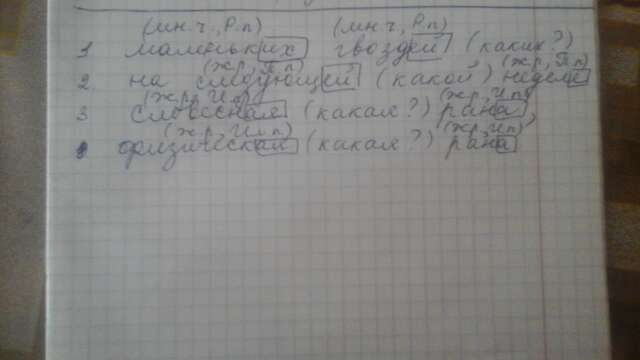 (мн.ч., Р.п) (мн.ч., Р.п)
1 маленьких гвоздей (каких?)
(ж.р., П.п) (ж.р., П.п)
2. на следующей (какой) неделе
(ж.р., И.п) (ж.р., И.п)
3 словесная (какая?) рана,
(ж.р., И.п) (ж.р., И.п)
физическая (какая?) рана